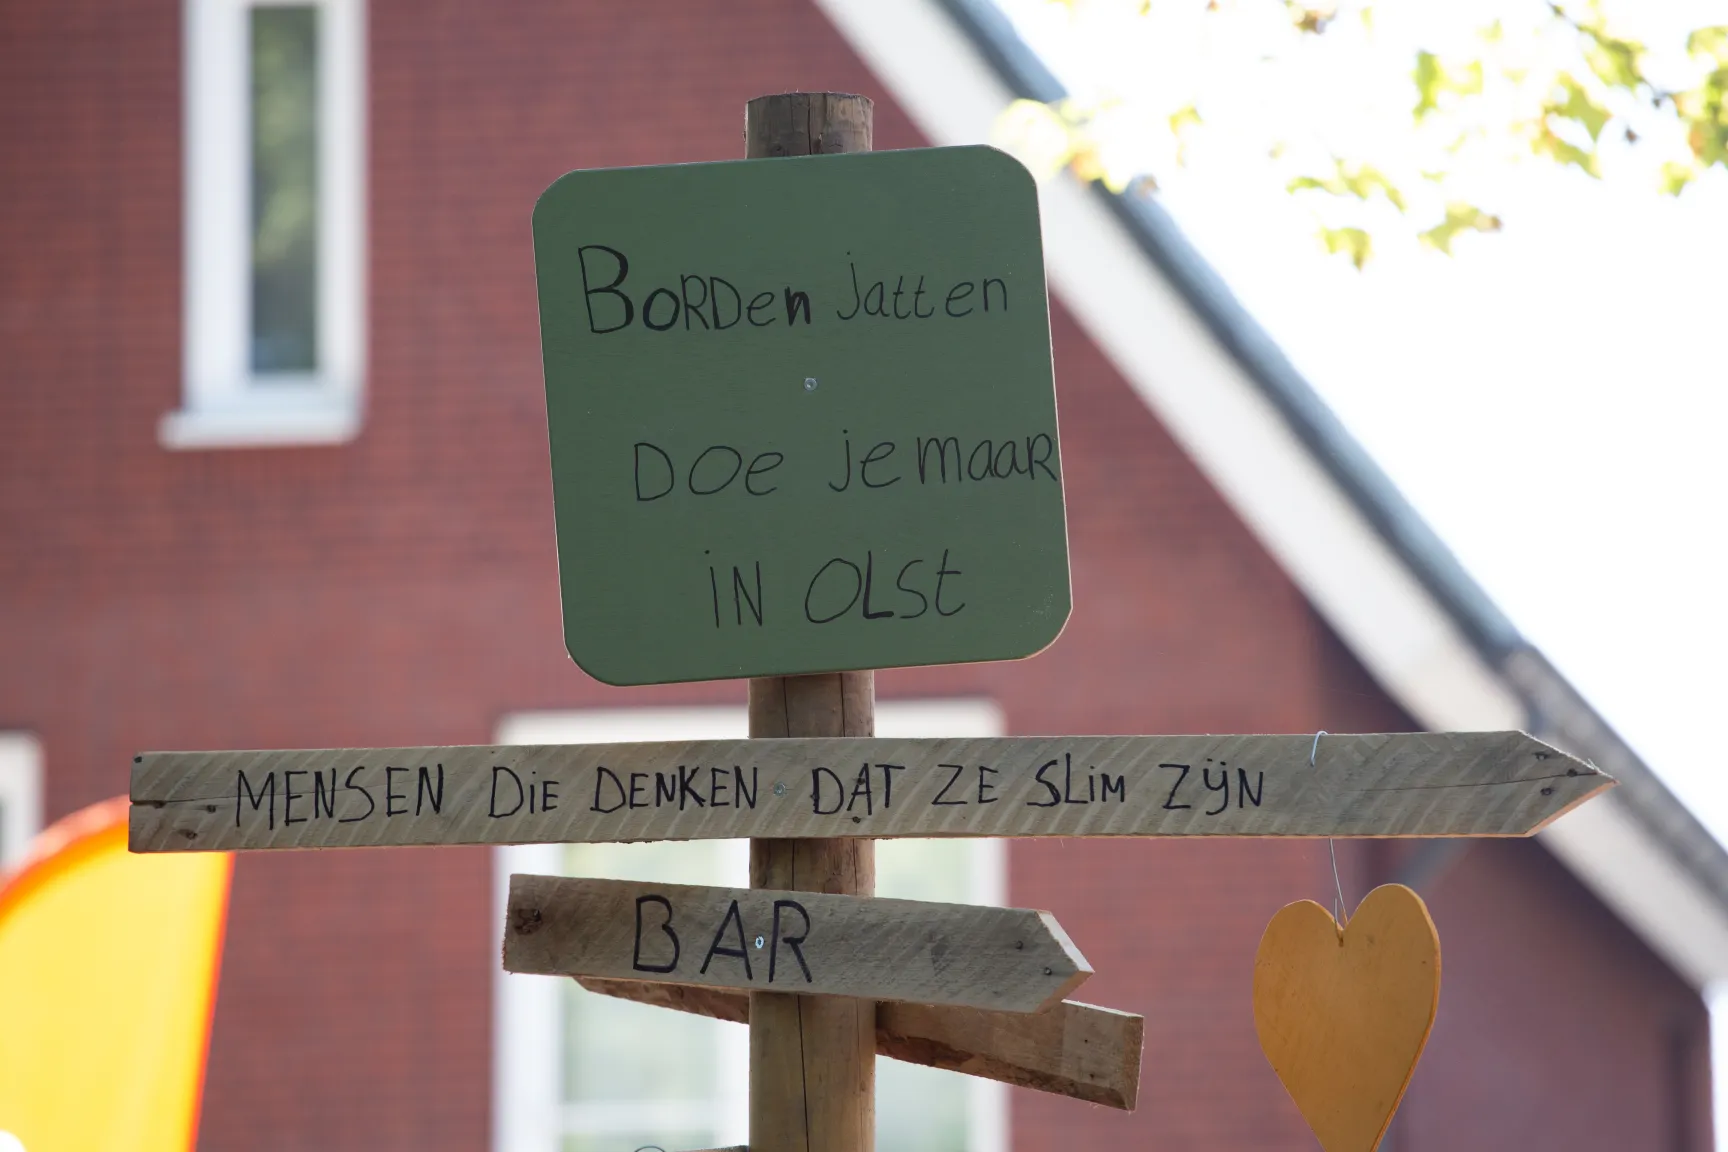 BORDen jatten
DOe je maaR
iN OLSt
MENSEN DiE DENKEN DAT ZE SLiM ZijN
BAR